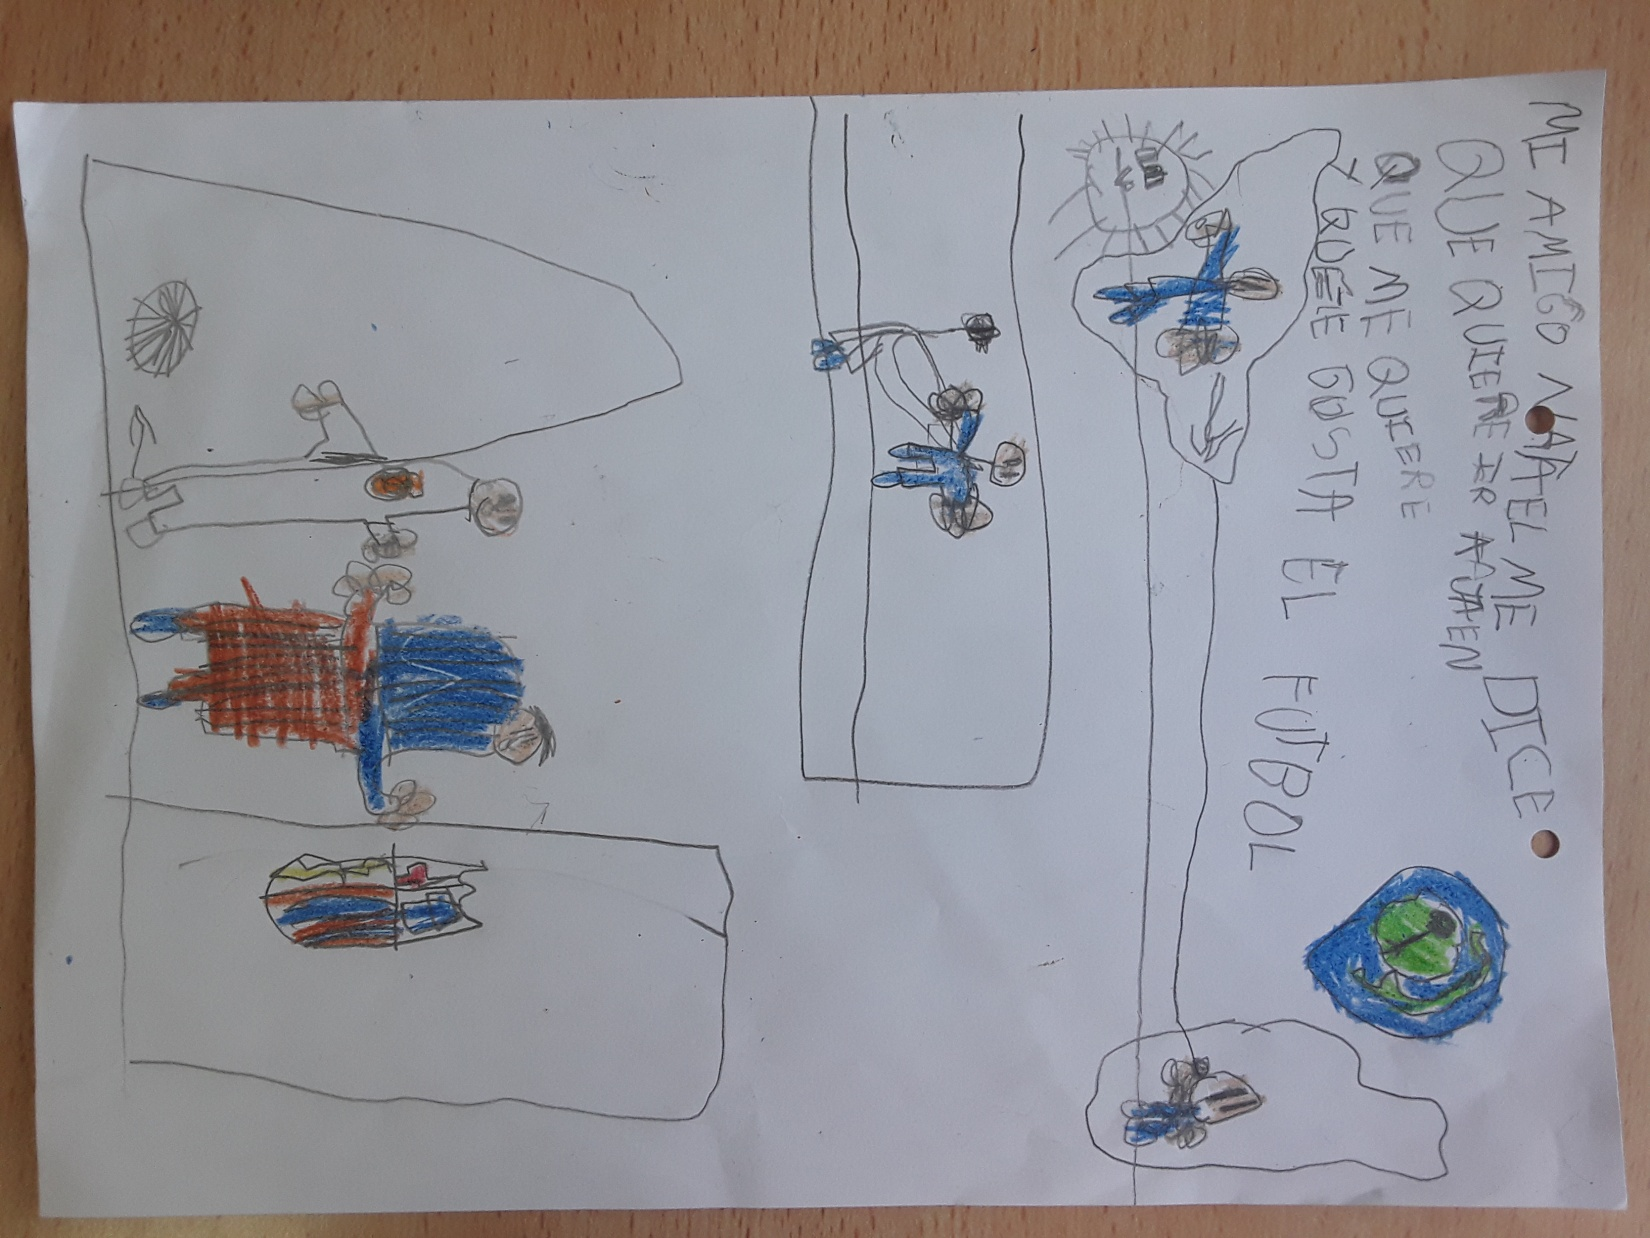 MI AMIGO NAAEL ME DICE
QUE QUIERE IR A JAEN
QUE ME QUIERE
Y QUE LE GUSTA EL FUTBOL